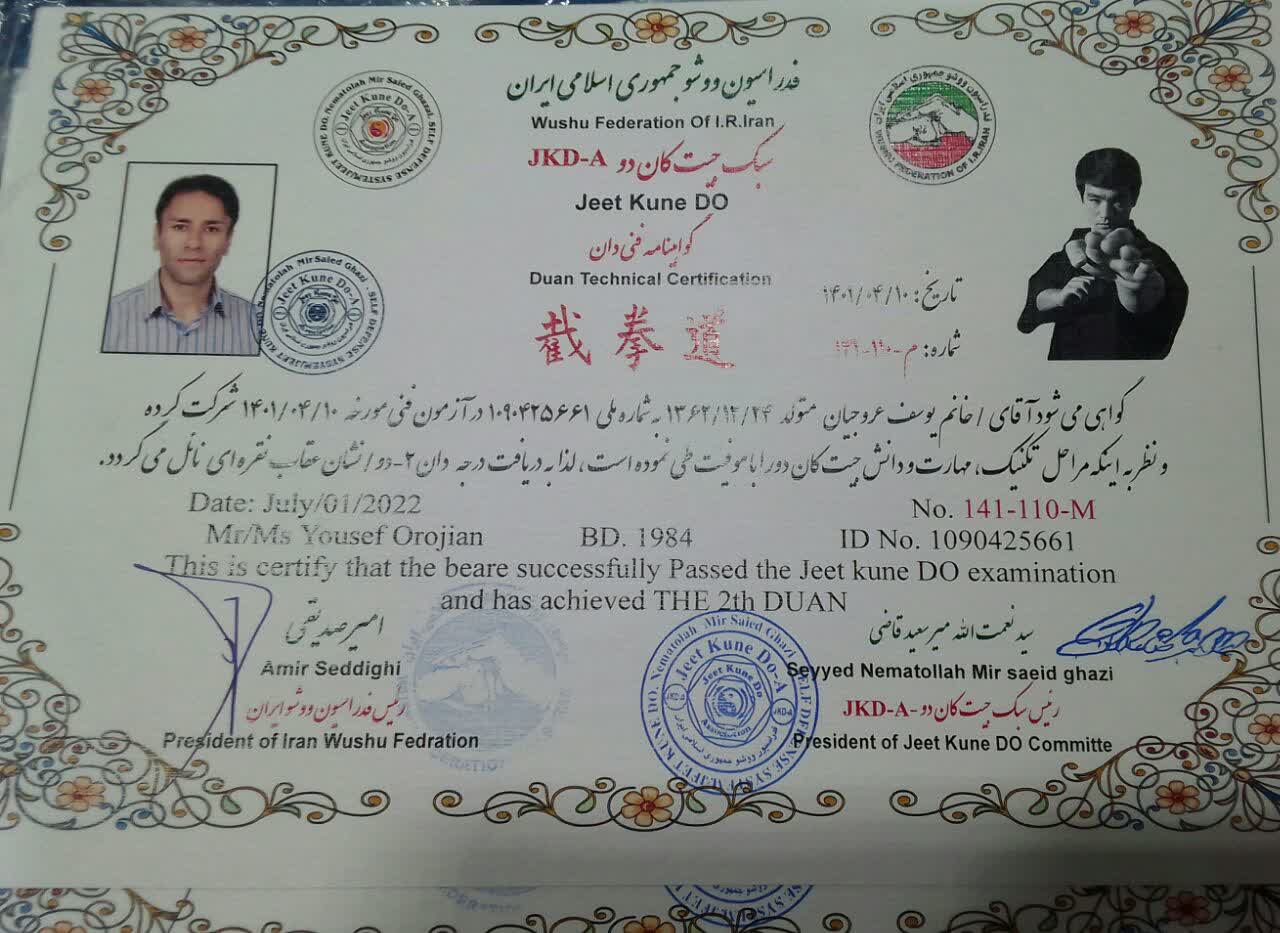 فدراسیون ووشو جمهوری اسلامی ایران
Wushu Federation Of I.R.Iran
سبک جیت کان دو JKD-A
Jeet Kune DO
گواهینامه فنی دان
Duan Technical Certification
截拳道
تاریخ: ۱۴۰۱/۰۴/۱۰
شماره:
گواهی می شود آقای / خانم یوسف عروجیان متولد ۱۳۶۲/۱۲/۲۴ به شماره ملی ۱۰۹۰۴۲۵۶۶۱ در آزمون فنی مورخه ۱۴۰۱/۰۴/۱۰ شرکت کرده
و نظر به اینکه مراحل تکنیک، مهارت و دانش جیت کان دو را با موفقیت طی نموده است، لذا به دریافت درجه دان ۲-دو / نشان عقاب نقره ای نائل می گردد.
Date: July/01/2022
No. 141-110-M
Mr/Ms Yousef Orojian BD. 1984 ID No. 1090425661
This is certify that the beare successfully Passed the Jeet kune DO examination
and has achieved THE 2th DUAN
امیر صدیقی
Amir Seddighi
رئیس فدراسیون ووشو ایران
President of Iran Wushu Fedration
سید نعمت الله میر سعید قاضی
Seyyed Nematollah Mir saeid ghazi
رئیس سبک جیت کان دو-JKD-A
President of Jeet Kune DO Committe
JEET KUNE DO. Nematolah Mir Saied Ghazi. SELF DEFENSE SYSTEM
Jeet Kune Do-A
Jeet Kune Do
Association
فدراسیون ووشو جمهوری اسلامی ایران
WUSHU FEDERATION OF I.R.IRAN